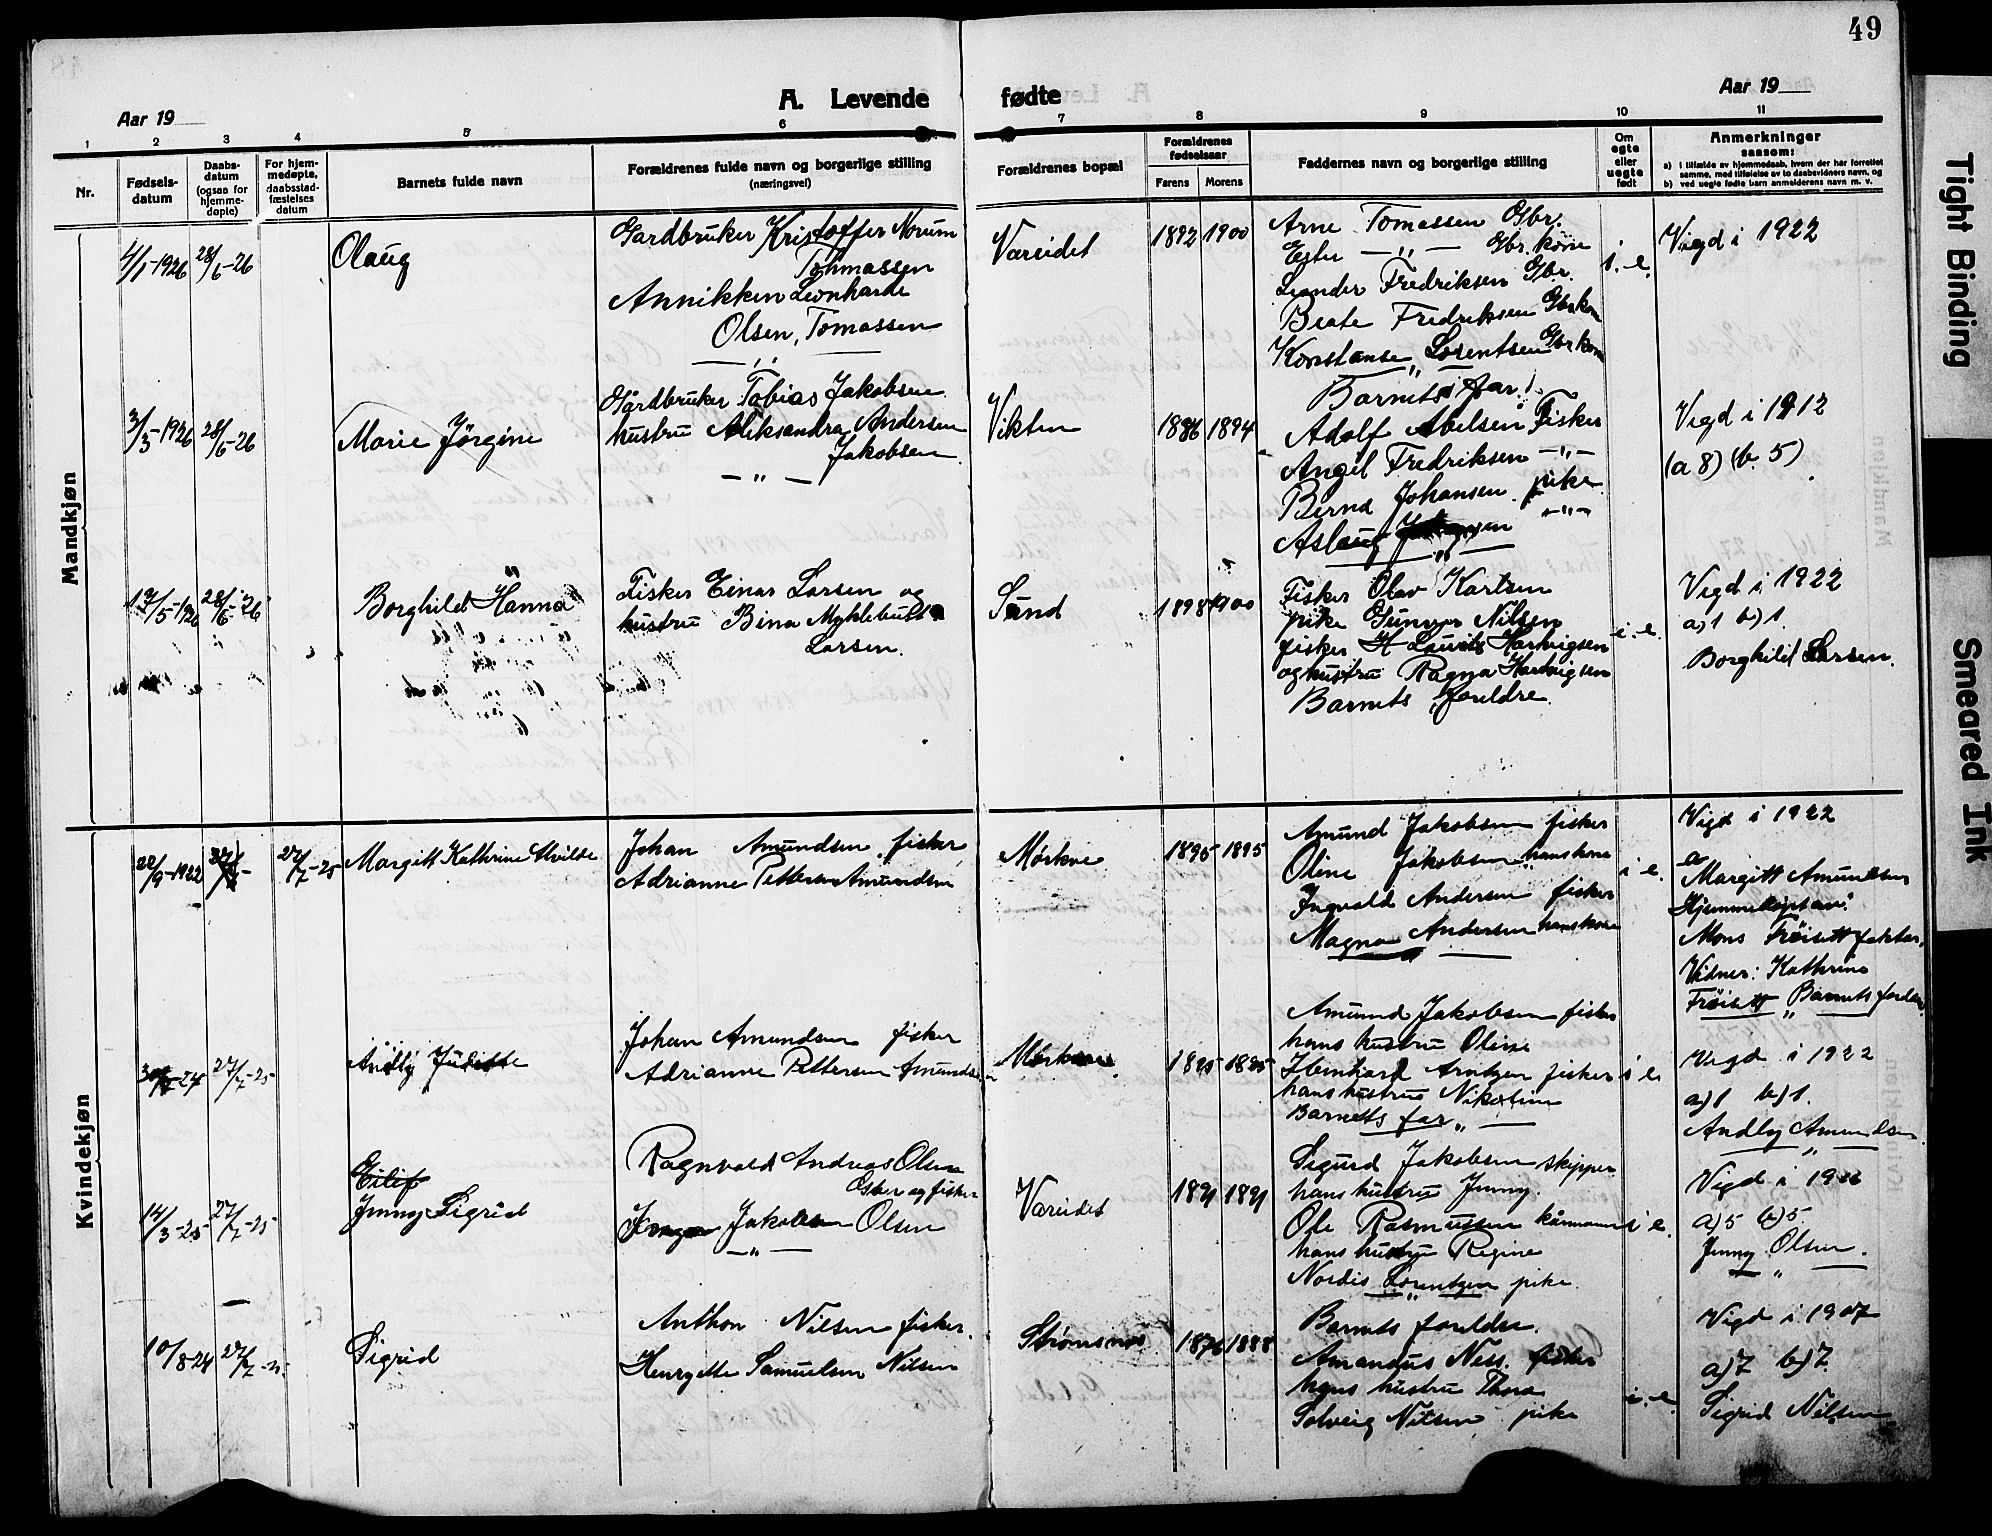 49
A. Levende fødte
Aar 19
Aar 19
1 2 3 4 5 6 7 8 9 10 11
Nr.
Fødsels-
datum
Daabs-
datum
(ogsaa for
hjemme-
døpte)
For hjem-
medøpte,
daabsstad-
fæstelses
datum
Barnets fulde navn
Forældrenes fulde navn og borgerlige stilling
(næringsvei)
Forældrenes bopæl
Forældrenes
fødselsaar
Farens Morens
Faddernes navn og borgerlige stilling
Om
egte
eller
uegte
født
Anmerkninger
saasom:
a) i tilfælde av hjemmedaab, hvem der har forrettet
samme, med tilføielse av to daabsvidners navn, og
b) ved uegte fødte barn anmelderens navn m. v.
Mandkjøn
4/1-1926 28/6-26
Olaug
Gardbruker Kristoffer Norum
Tohmassen
Annikken Leonharde
Olsen, Tomassen
Vareidet
1892 1900
Arne Tomassen Gbr.
Ester -"- Gbr. kone
Leander Fredriksen Gbr.
Beate Fredriksen Gbr. kon
Konstanse Lorentsen Gbr. kone
i. e.
Vigd i 1922
3/3-1926 28/6-26
Marie Jørgine
Gårdbruker Tobias Jakobsen
hustru Aleksandra Andersen
Jakobsen
Vikten
1886 1894
Barnets far.
Adolf Abelsen Fisker
Angel Fredriksen -"-
Bernd Johansen pike
Aslaug
Vigd i 1912
(a 8) (b. 5)
17/5-1926 28/6-26
Borghild Hanna
Fisker Einar Larsen og
hustru Bina Myklebust
Larsen.
Sund
1898 1900
Fisker Olav Karlsen
pike Gunvor Nilsen
fisker H Laurits Hartvigsen
og hustru Ragna Hartvigsen
Barnets foreldre.
i. e.
Vigd i 1922
a) 1 b) 1.
Borghild Larsen.
Kvindekjøn
22/9-1922
27/7-25
Margitt Kathrine Alvilde
Johan Amundsen fisker
Adrianne Pettersen Amundsen
Mørkve
1895 1895
Amund Jakobsen fisker
Oline Jakobsen hans kone
Ingvald Andersen fisker
Magna Andersen hans kone
i e.
Vigd i 1922
a
Margitt Amundsen
Hjemmedøpt av:
Mons Frøisett
Vidner: Kathrine
Frøisett Barnets foreldre
24 27/7-25
Andly
Johan Amundsen fisker
Adrianne Pettersen Amundsen
1895 1895
Amund Jakobsen fisker
hans hustru Oline
Arntzen fisker
hans hustru Nikoline
Barnets far
i e
Vigd i 1922
a) 1 b) 1.
Andly Amundsen
14/3-25 27/7-25
Eilif
Jenny Sigrid
Ragnvald Andreas Olsen
Gbr og fisker
Jakobsen Olsen
Vareidet
1891 1891
Sigurd Jakobsen skipper
hans hustru Jenny.
Ole Rasmussen
hans hustru Regine
Nordis Lorentzen pike
i e.
Vigd i
a) 5 b) 5.
Jenny Olsen.
10/8-24 27/7-25
Sigrid
Anthon Nilsen fisker.
Henryette Samuelsen Nilsen
Strømsnes
1876 1888
Barnets foreldre.
Amandus Ness. fisker
hans hustru Thora
Solveig Nilsen pike
i. e.
Vigd i 1907
a) 7 b) 7.
Sigrid Nilsen
Tight Binding
Smeared Ink